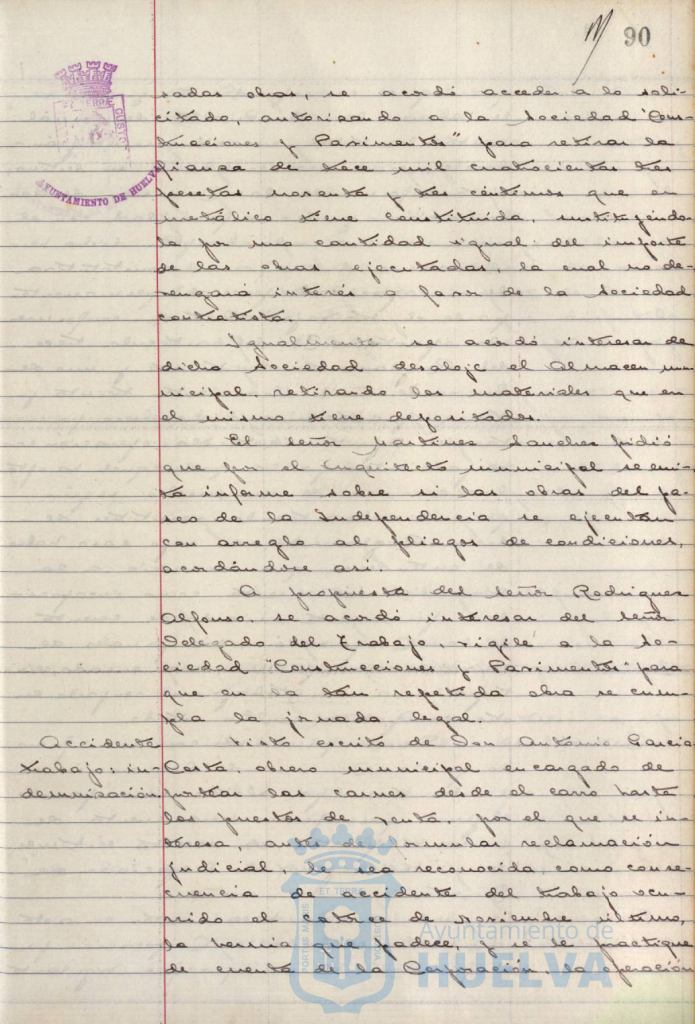 90
sadas obras, se acordó acceder a lo soli-
citado, autorizando a la Sociedad "Cons-
trucciones y Pavimentos" para retirar la
fianza de trece mil cuatrocientas tres
pesetas noventa y tres céntimos que en
metálico tiene constituida, sustituyendo
la por una cantidad igual del importe
de las obras ejecutadas, la cual no de-
vengará interés a favor de la Sociedad
contratista.
Igualmente se acordó interesar de
dicha Sociedad desaloje el Almacen mu-
nicipal, retirando los materiales que en
el mismo tiene depositados.
El señor Martinez Sanchez pidió
que por el Arquitecto municipal se emi-
ta informe sobre si las obras del pa-
seo de la Independencia se ejecutan
con arreglo al pliegos de condiciones,
acordándose asi.
A propuesta del señor Rodriguez
Alfonso, se acordó interesar del señor
Delegado del Trabajo, vigile a la So-
ciedad "Construcciones y Pavimentos" para
que en la tan repetida obra se cum-
pla la jornada legal.
Accidente
trabajo: in-
demnización.
Visto escrito de Don Antonio Garcia
Costa, obrero municipal encargado de
portear las carnes desde el carro hasta
los puestos de venta, por el que se in-
teresa, antes de formular reclamación
judicial, le sea reconocida como conse-
cuencia de accidente del trabajo ocu-
rrido el catorce de noviembre último,
la hernia que padece, y se le practique
de cuenta de la Corporación, la operación
AYUNTAMIENTO DE HUELVA
Ayuntamiento de
HUELVA